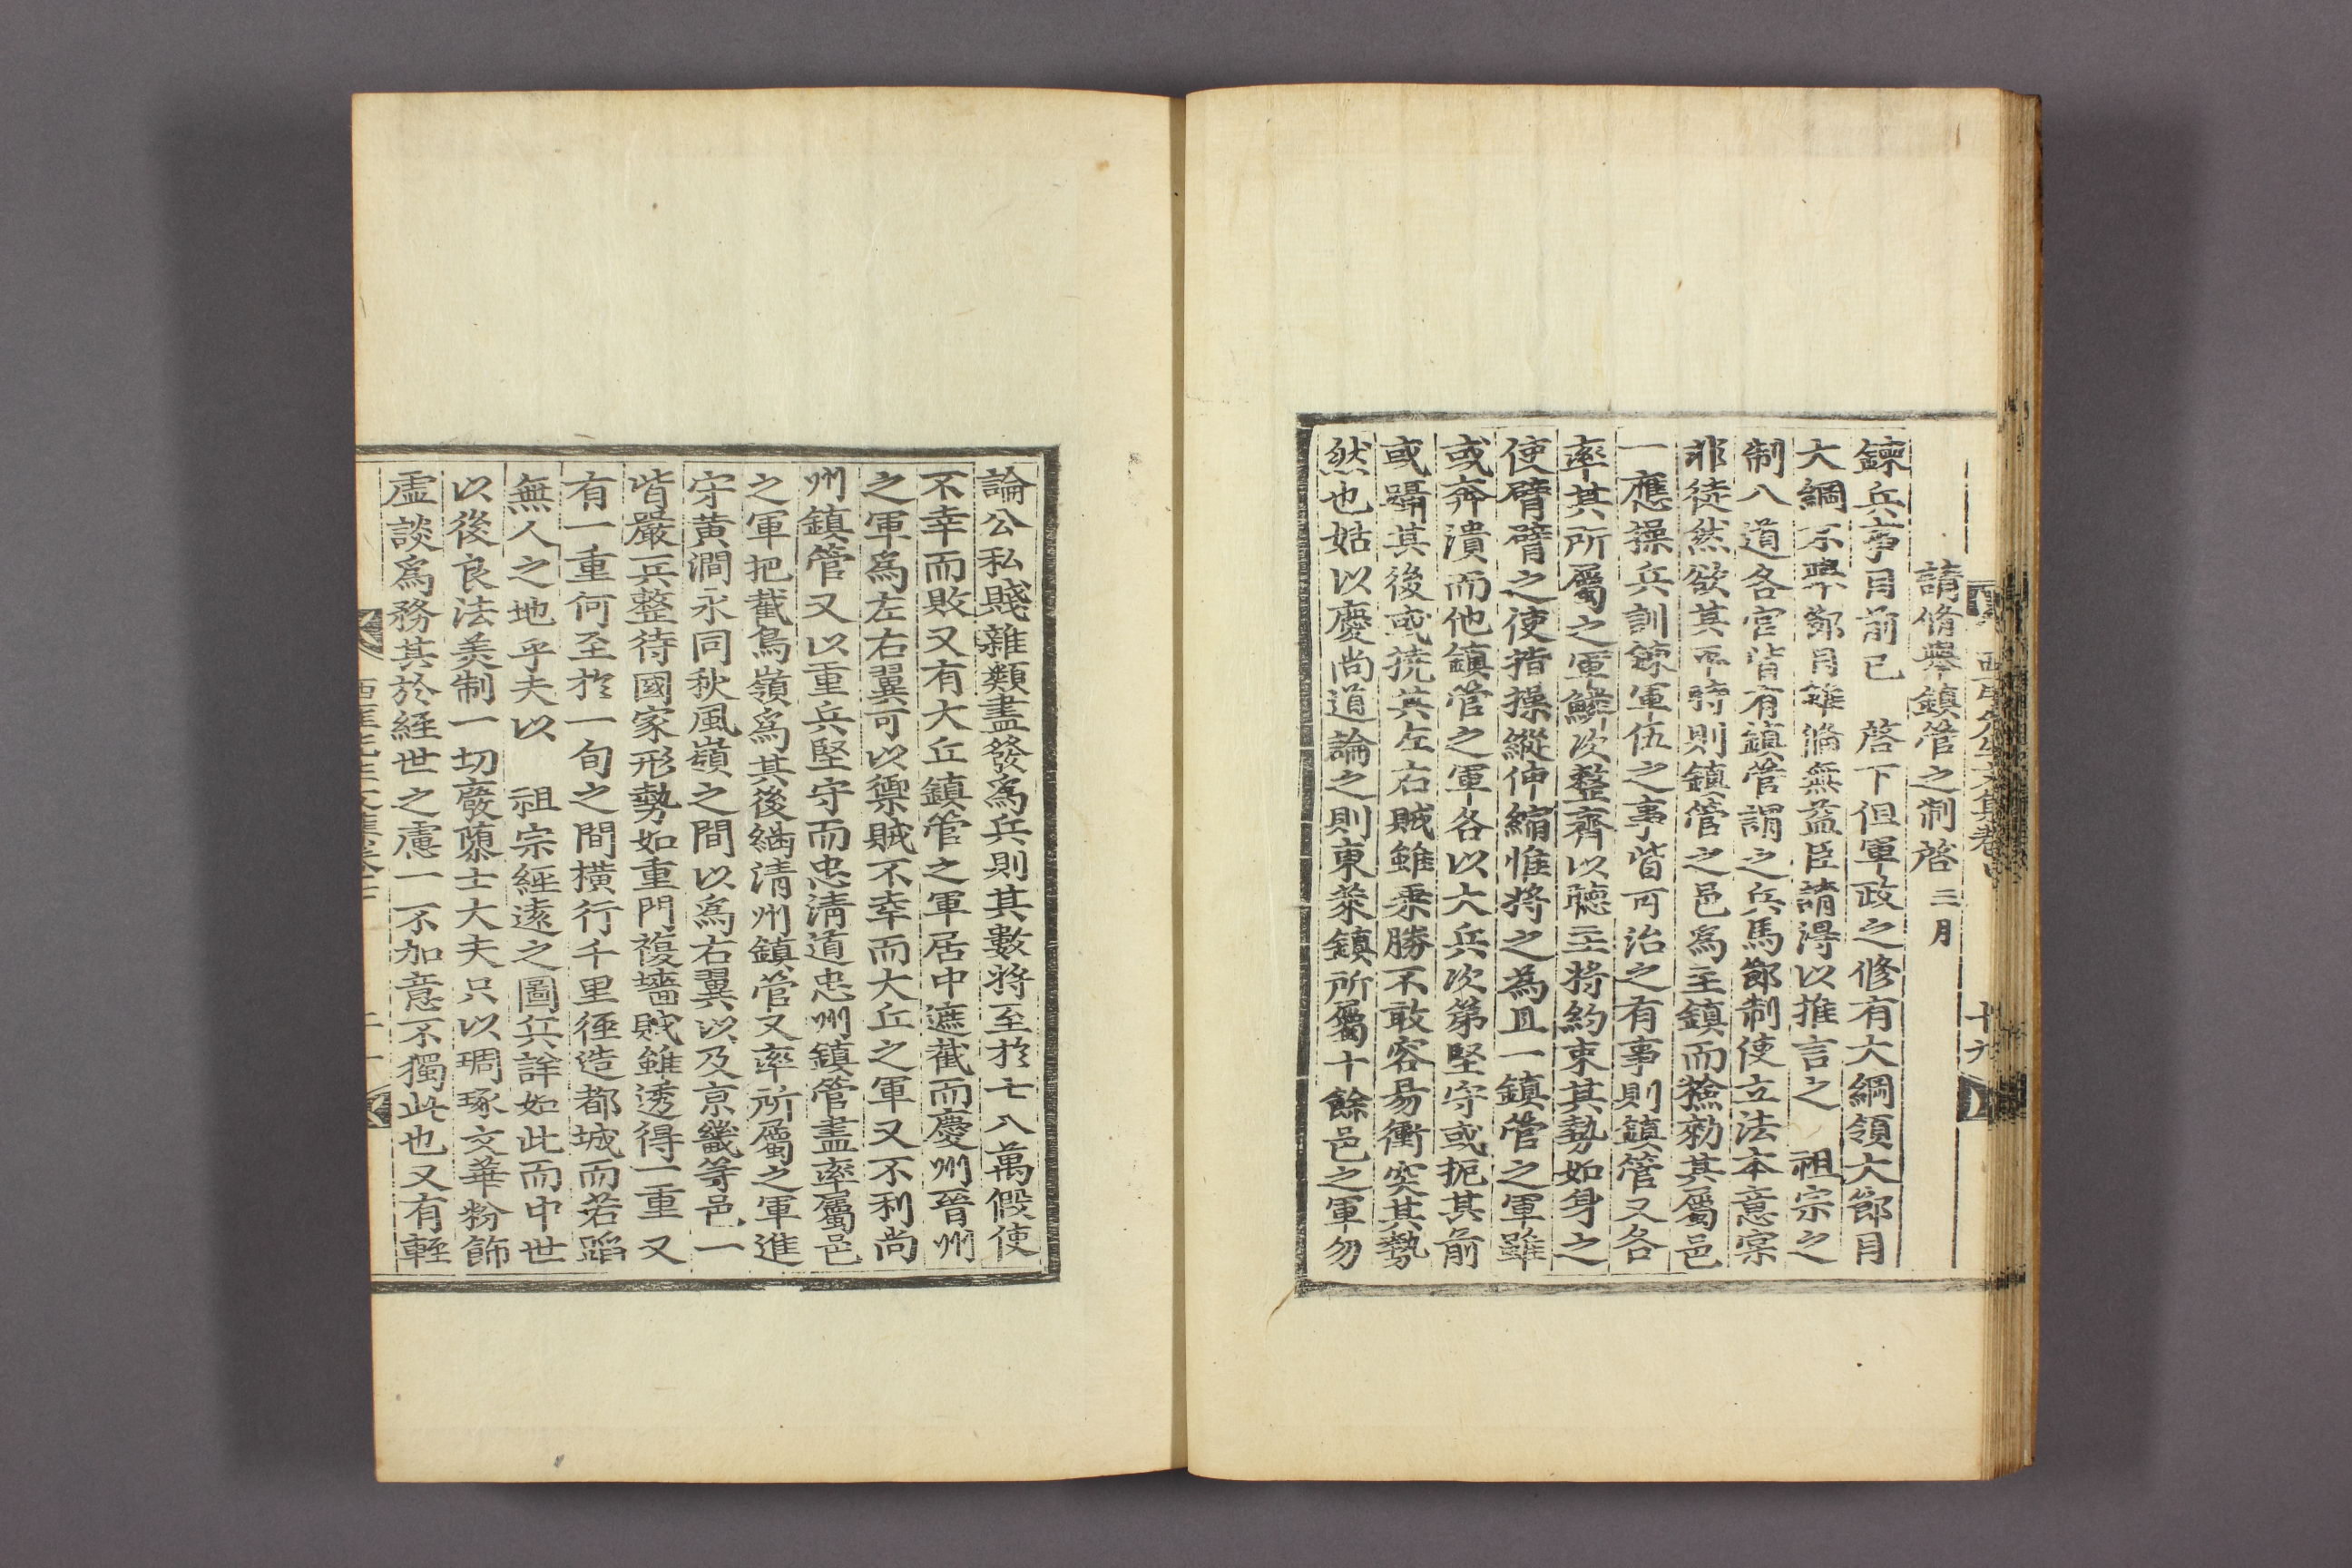 請脩擧鎭管之制啓 三月
鍊兵事目前已 啓下但軍政之修有大綱領大節目
大綱不擧節目雖脩無益臣請得以推言之 祖宗之
制八道各官皆有鎭管謂之兵馬節制使立法本意寔
非徒然欲其平時則鎭管之邑爲主鎭而撿勑其屬邑
一應操兵訓鍊軍伍之事皆可治之有事則鎭管又各
率其所屬之軍鱗次整齊以聽主將約束其勢如身之
使臂臂之使指操縱伸縮惟將之為且一鎭管之軍雖
或奔潰而他鎭管之軍各以大兵次第堅守或扼其前
或躡其後或撓其左右賊雖乘勝不敢容易衝突其勢
然也姑以慶尚道論之則東萊鎭所屬十餘邑之軍勿
論公私賤雜類盡發爲兵則其數將至於七八萬假使
不幸而敗又有大丘鎭管之軍居中遮截而慶州晉州
之軍爲左右翼可以禦賊不幸而大丘之軍又不利尚
州鎭管又以重兵堅守而忠淸道忠州鎭管盡率屬邑
之軍把截鳥嶺爲其後繼淸州鎭管又率所屬之軍進
守黃澗永同秋風嶺之間以爲右翼以及京畿等邑一
皆嚴兵整待國家形勢如重門複墻賊雖透得一重又
有一重何至於一旬之間橫行千里徑造都城而若蹈
無人之地乎夫以 祖宗經遠之圖兵詳如此而中世
以後良法美制一切廢墮士大夫只以琱琢文華粉飾
虛談爲務其於経世之慮一不加意不獨此也又有輊